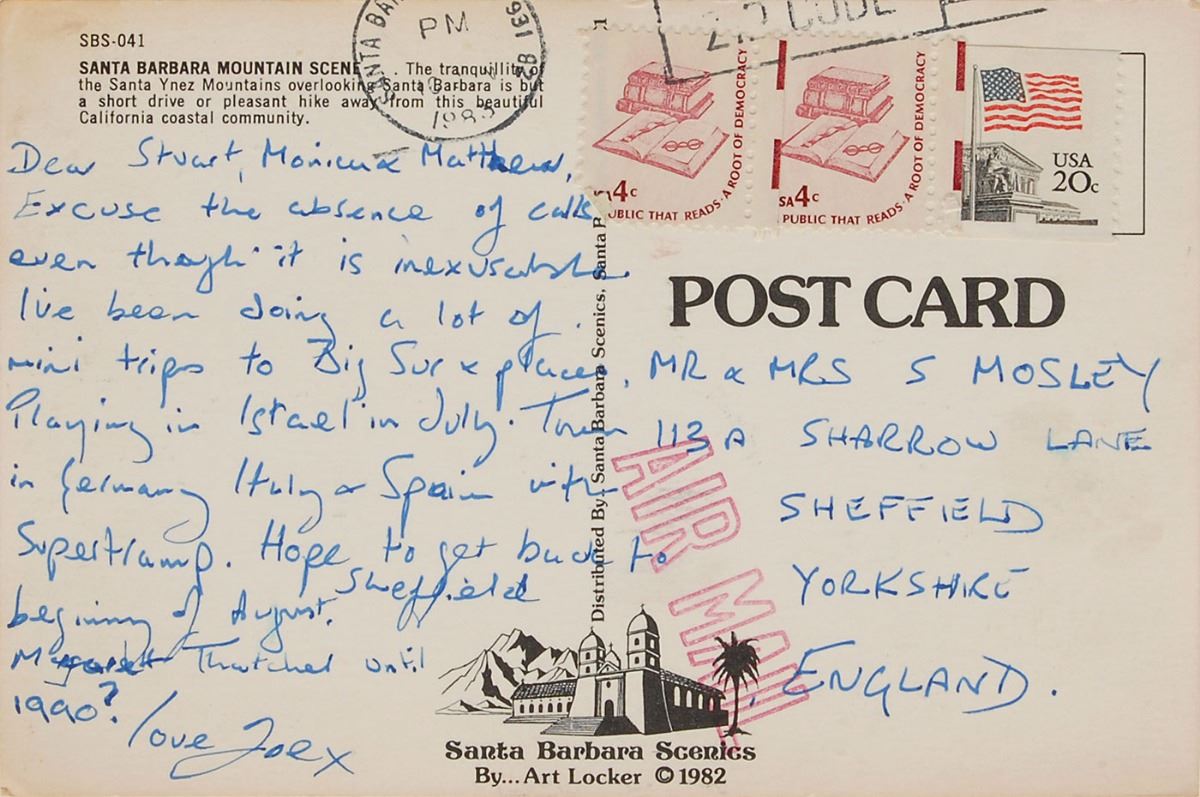 SBS-041
SANTA BARBARA MOUNTAIN SCENE . . . The tranquillity of
the Santa Ynez Mountains overlooking Santa Barbara is but
a short drive or pleasant hike away from this beautiful
California coastal community.
SANTA BAR
PM
1983
931
ZIP CODE
4c
USA 4c
A PUBLIC THAT READS · A ROOT OF DEMOCRACY
PUBLIC THAT READS · A ROOT OF DEMOCRACY
USA
20c
Dear Stuart, Monica & Matthew,
Excuse the absence of calls
even though it is inexusable
I've been doing a lot of
mini trips to Big Sur & places.
Playing in Israel in July. Tour
in Germany Italy & Spain with
Supertramp. Hope to get back to
Sheffield
beginning of August.
Margaret Thatcher until
1990?
love Joe x
Distributed By: Santa Barbara Scenics, Santa B
POST CARD
MR & MRS S MOSLEY
113A SHARROW LANE
SHEFFIELD
YORKSHIRE
ENGLAND.
AIR MAIL
Santa Barbara Scenics
By... Art Locker © 1982